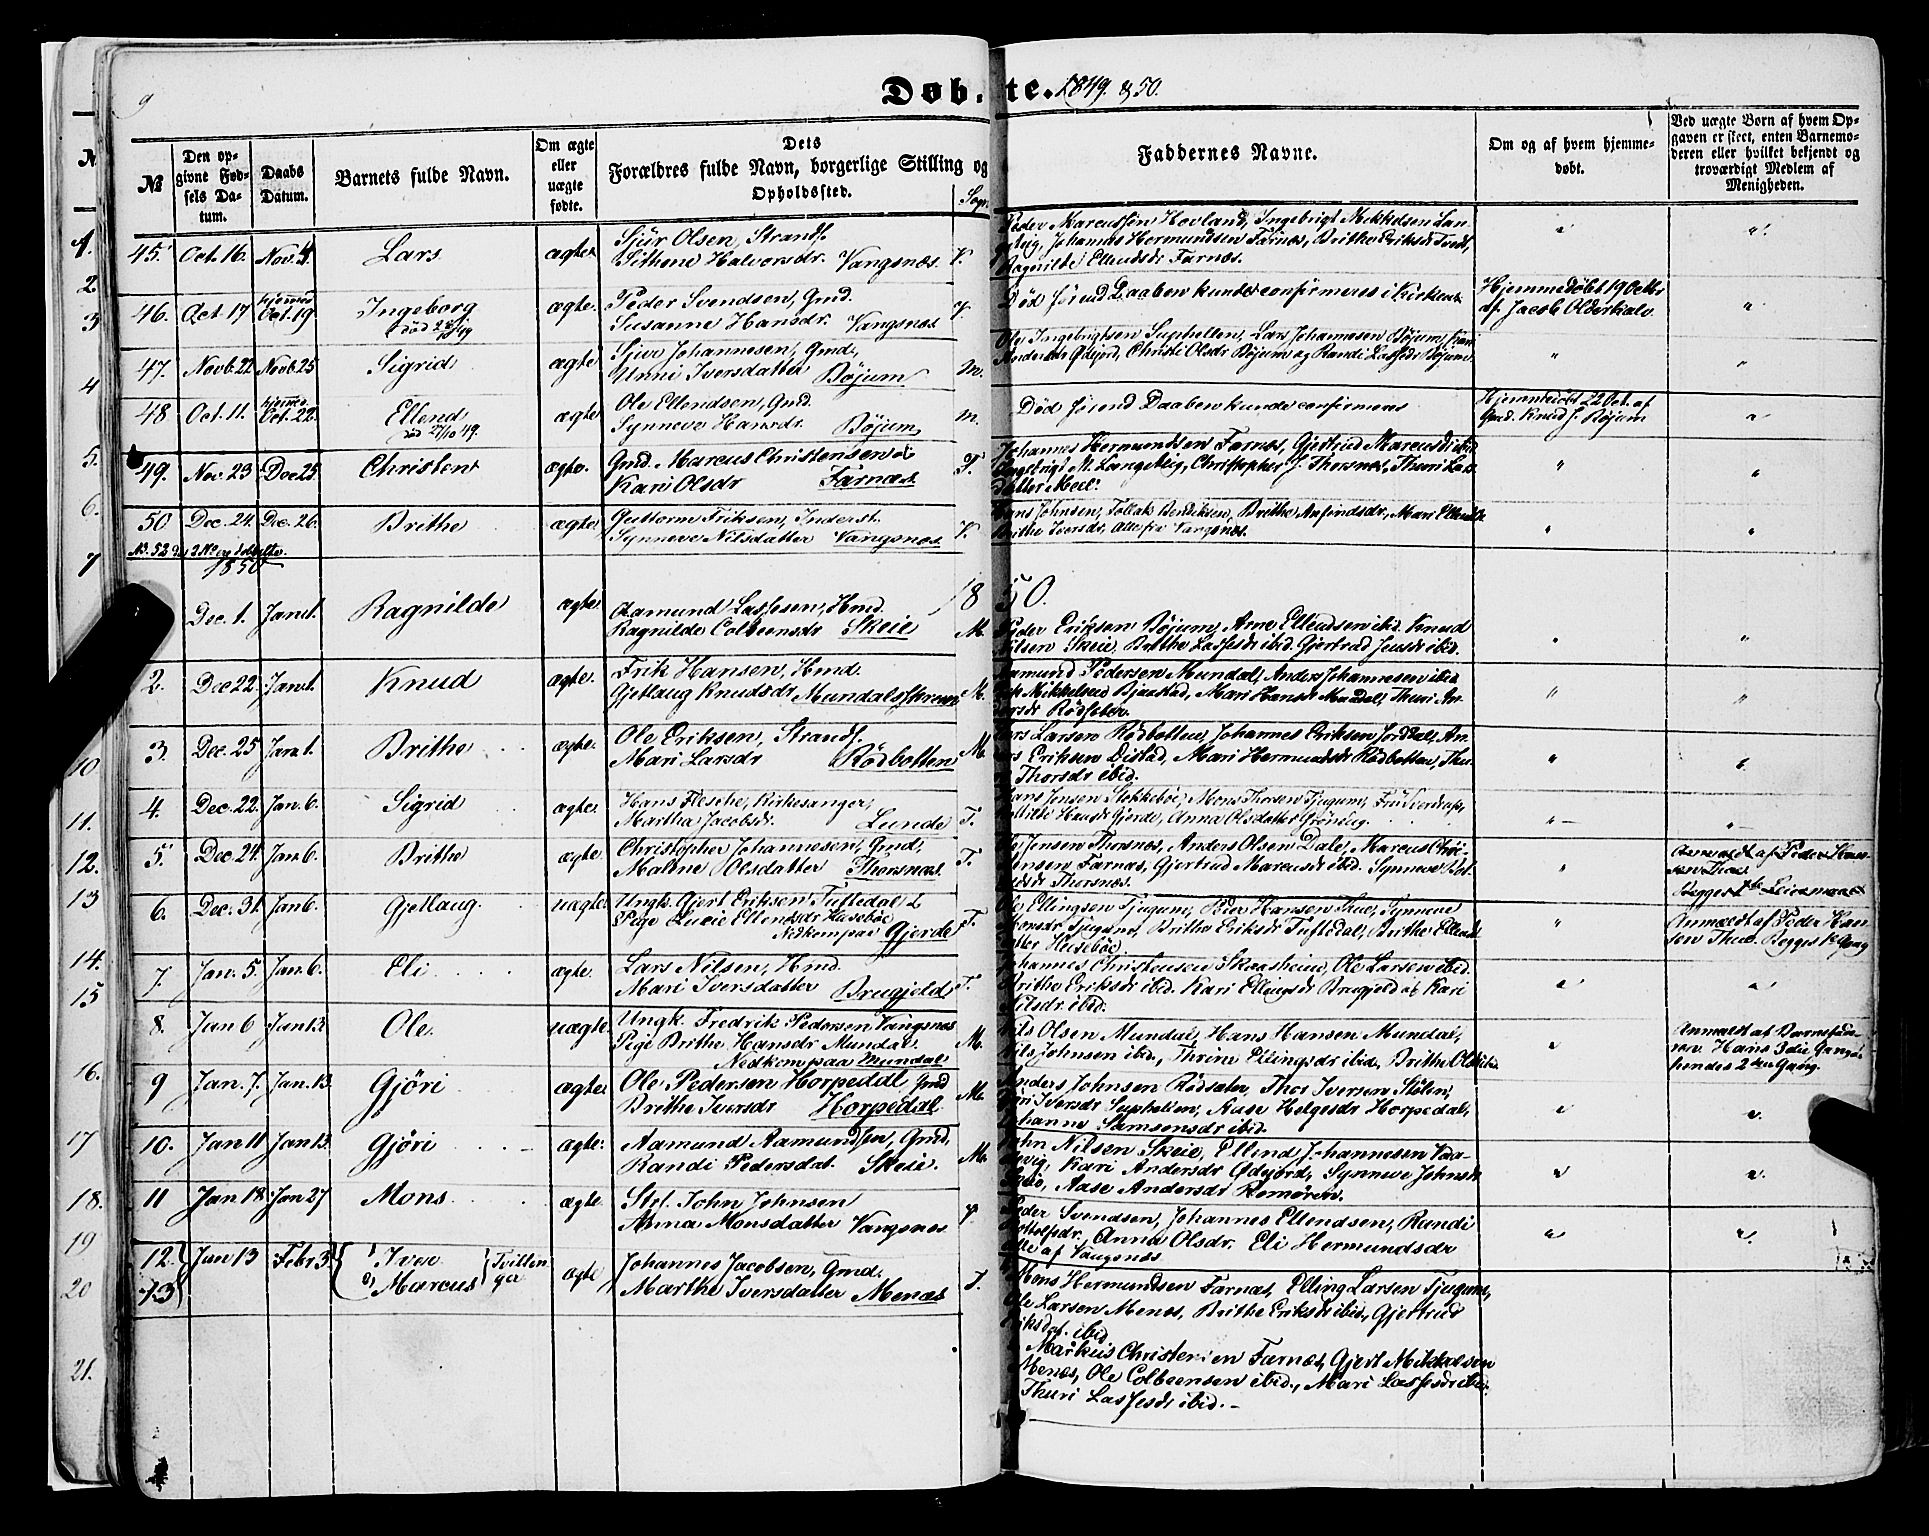 9
Døbte. 1849. & 50.
№
Den opgivne Fødsels Datum.
Daabs Datum.
Barnets fulde Navn.
Om ægte eller uægte fødte.
Dets Forældres fulde Navn, borgerlige Stilling og Opholdssted.
Sogn
Faddernes Navne.
Om og af hvem hjemmedøbt.
Ved uægte Børn af hvem Opgaven er skeet, enten Barnemoderen eller hvilket bekjendt og troværdigt Medlem af Menigheden.
45. Oct. 16. Nov. 4. Lars ægte Sjur Olsen, Strands.
Sithene Halvorsdr. Vangsnæs. V.
Peder Marcussen Hovland, Ingebrigt Mikkelsen Lan-
teig, Johannes Hermundsen Farnæs, Brithe Eriksdr
Ragnilde Ellendsdr Farnæs.
46. Oct 17 hjemmed Oct. 19. Ingeborg ægte. Peder Svendsen, Gmd.
Susanne Hansdr. Vangsnæs V.
Død førend Daaben kunde confirmeres i Kirken
Hjemmedøbt 19 Octbr
af Jacob
47. Novb. 22 Novb. 25 Sigrid ægte Sjur Johannesen, Gmd,
Unni Iversdatter Bøjum M.
Ole Ingebrigtsen Suphellen, Lars Johannesen Bøjum,
Anders Ødejord, Christi Olsdr Bøjum og Randi Lassesdr Bøjum.
48 Oct. 11. hjemmed Oct. 22. Ellend
død 27/10 49. ægte Ole Ellendsen, Gmd.
Synneve Hansdr. Bøjum M.
Død førend Daaben kunde confirmeres
Hjemmedøbt 22 Oct. af
Gmd. Knud J. Bøjum
49. Nov. 23 Dec 25 Christen ægte. Gmd. Marcus Christensen
Kari Olsdr Farnæs T.
Johannes Hermundsen Farnæs, Gjertrud Marcusdr ibid
Ingebrigt M. Langeteig, Christopher J. Thorsnæs, Thuri Las-
datter
50 Dec. 24. Dec. 26. Brithe ægte Guttorm Eriksen, Inderst.
Synneve Nilsdatter Vangsnæs V.
Hans Johnsen, Tollak Bendiksen, Brithe Anfindsdr, Mari Ellendsdr
Brithe Iversdr, Alle fra Vangsnæs.
1850
1850.
Dec. 1. Jan 1. Ragnilde ægte Aamund Lassesen, Hmd.
Ragnilde Colbeensdr Skeie M.
Peder Eriksen Bøjum, Arne Ellendsen ibid. Knud
Nilsen Skeie, Brithe Lassesdr ibid. Gjertrud Jensdr ibid.
2. Dec 22. Jan 1. Knud ægte. Erik Hansen, Hmd.
Gjetlaug Knudsdr Mundalsstrand M.
Aamund Pedersen Mundal, Anders Johannesen ibid
Mikkelsen Bjaastad, Mari Hansdr Mundal, Thuri An-
dersdr
3. Dec. 25 Jan 1. Brithe ægte. Ole Eriksen, Strands.
Mari Larsdr Rødbotten M.
Lars Larsen Rødbotten, Johannes Eriksen Jordal, An-
ders Eriksen Distad, Mari Hermundsdr Rødbotten, Thu-
ri Thorsdr ibid.
4. Dec. 22. Jan. 6. Sigrid ægte. Hans Flesche, Kirkesanger,
Martha Jacobsdr. Lunde T.
Hans Jensen Stokkebøe, Mons Thorsen Tjugum,
Hansdr Gjerde, Anna Olsdatter Grøneng.
5. Dec. 24. Jan 6. Brithe ægte Christopher Johannesen, Gmd,
Malene Olsdatter Thorsnæs. T.
Ole Jensen Thorsnæs, Anders Olsen Dale, Marcus Chri-
stensen Farnæs, Gjertrud Marcusdr ibid. Synneve
Thorsnæs.
Anmeldt af Peder Han-
sen Thue
Begges 1ste Leiermaal
6. Dec. 31. Jan 6. Gjetlaug uægte Ungk. Gjert Eriksen Tuftedal &
Pige Lucie Ellendsdr Husebøe
Nedkom paa Gjerde T.
Ole Ellingsen Tjugum, Peder Hansen Thue, Synneve
Monsdr Tjugum, Brithe Eriksdr Tuftedal, Brithe Ellends-
datter Husebøe
Anmeldt af Peder Han-
sen Thue. Begges 1ste Gang
7. Jan. 5. Jan. 6. Eli ægte. Lars Nilsen, Hmd.
Mari Iversdatter Brugjeld T.
Johannes Christensen Skaasheim, Ole Larsen ibid.
Brithe Eriksdr ibid. Kari Ellingsdr Brugjeld og Kari
Nilsdr ibid.
8. Jan 6 Jan 13. Ole uægte Ungk. Fredrik Pedersen Vangsnæs
Pige Brithe Hansdr Mundal
Nedkom paa Mundal M.
Nils Olsen Mundal, Hans Hansen Mundal,
Nils Johnsen ibid., Thrine Ellingsdr ibid, Brithe Olsdr ibid.
Anmeldt af Barnefade-
ren. Hans 3die Gang
hendes 2den Gang.
9 Jan. 7. Jan. 13. Gjöri ægte Ole Pedersen Horpedal Gmd
Brithe Iversdr Horpedal M.
Anders Johnsen Rødsæter, Thor Iversen Stølen,
Iversdr Suphellen, Aase Helgesdr Horpedal,
Johanne Samsonsdr ibid.
10. Jan 11 Jan 13. Gjöri ægte. Aamund Aamundsen, Gmd.
Randi Pedersdat. Skeie. M.
John Nilsen Skeie, Ellend Johannesen Vaa-
Kari Andersdr Ødejord, Synneve Johnsdr
Aase Andersdr Romøren.
11 Jan 18. Jan 27 Mons ægte Stf. John Johnsen
Anna Monsdatter Vangsnæs V.
Peder Svendsen, Johannes Ellendsen, Randi
Botolfsdr. Anna Olsdr. Eli Hermundsdr
Alle af Vangsnæs
12. 13. Jan 13 Febr 3 1) Iver
2) Marcus Tvillinger ægte Johannes Jacobsen, Gmd.
Marthe Iversdatter Menæs T.
Mons Hermundsen Farnæs, Elling Larsen Tjugum,
Ole Larsen Menæs, Brithe Eriksdr ibid., Gjertrud
Eriksdat. ibid
Markus Christensen Farnæs, Gjert Mikkelsen
Menæs, Ole Colbeensen ibid., Mari Lassesdr ibid.
Thuri Lassesdr ibid.
1.
2
3
4
5.
6.
7
10
11.
12.
13
14.
15
16.
17
18.
19
20
21.